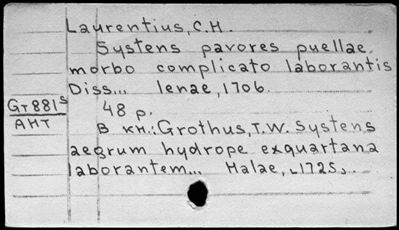 Laurentius, C.H.
Systens pavores puellae
morbo complicato laborantis
Diss... Ienae, 1706.
Gr881s
48 p.
AHT
В кн.: Grothus, T.W. Systens
aegrum hydrope exquartana
laborantem... Halae, [1725].